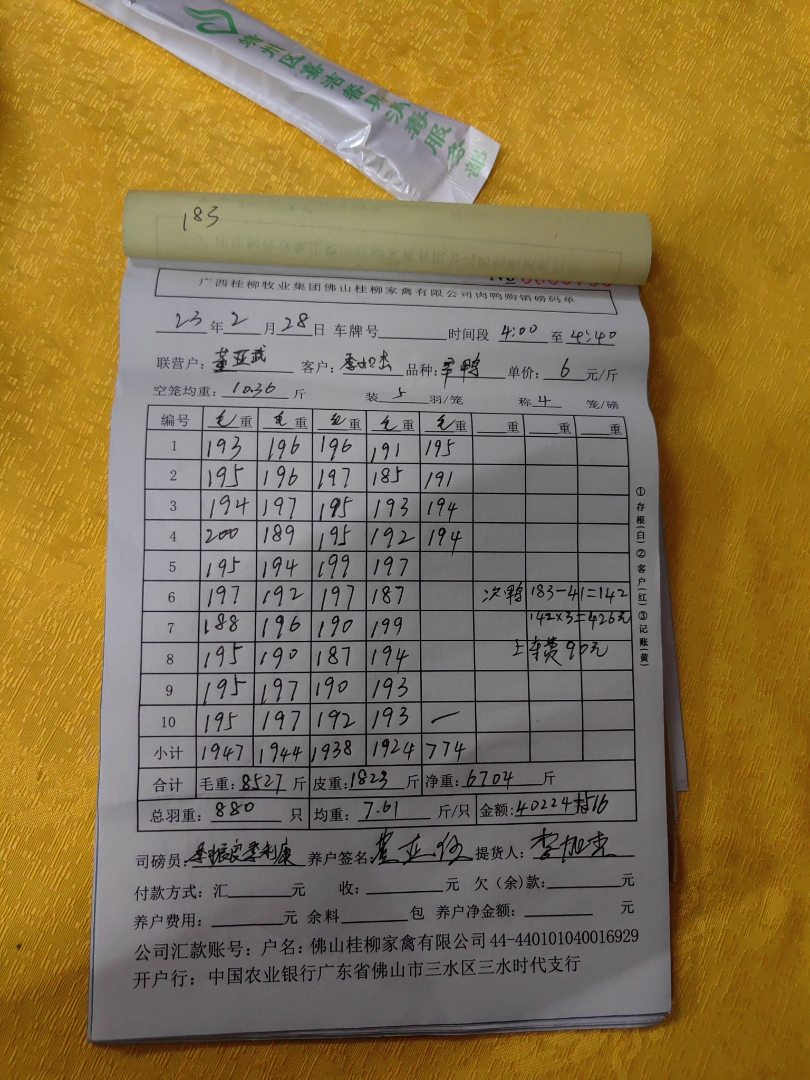 183
广西桂柳牧业集团佛山桂柳家禽有限公司肉鸭购销磅码单
23年2月28日 车牌号 时间段 4:00 至 4:40
联营户: 董亚武 客户: 李加杰 品种: 鸭 单价: 6 元/斤
空笼均重: 10.36 斤 装 5 羽/笼 称 4 笼/磅
编号 毛重 毛重 毛重 毛重 毛重 重 重 重
1 193 196 196 191 195
2 195 196 197 185 191
3 194 197 195 193 194
4 200 189 195 192 194
5 195 194 199 197
6 197 192 197 187 次鸭 183-41=142
7 188 196 190 199 142×3=426元
8 195 190 187 194 上车费90元
9 195 197 190 193
10 195 197 192 193 —
小计 1947 1944 1938 1924 774
合计 毛重: 8527 斤 皮重: 1823 斤 净重: 6704 斤
总羽重: 880 只 均重: 7.61 斤/只 金额: 40224
司磅员: 养户签名: 董亚 提货人: 李加杰
付款方式: 汇 元 收: 元 欠(余)款: 元
养户费用: 元 余料 包 养户净金额: 元
公司汇款账号: 户名: 佛山桂柳家禽有限公司 44-440101040016929
开户行: 中国农业银行广东省佛山市三水区三水时代支行
①存根(白)②客户(红)③记账(黄)